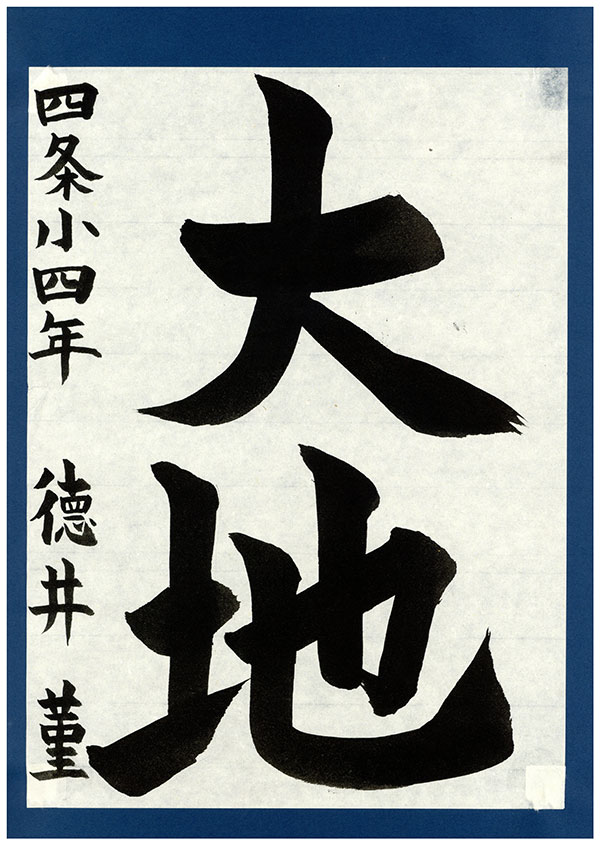 大地
四条小四年 徳井 菫